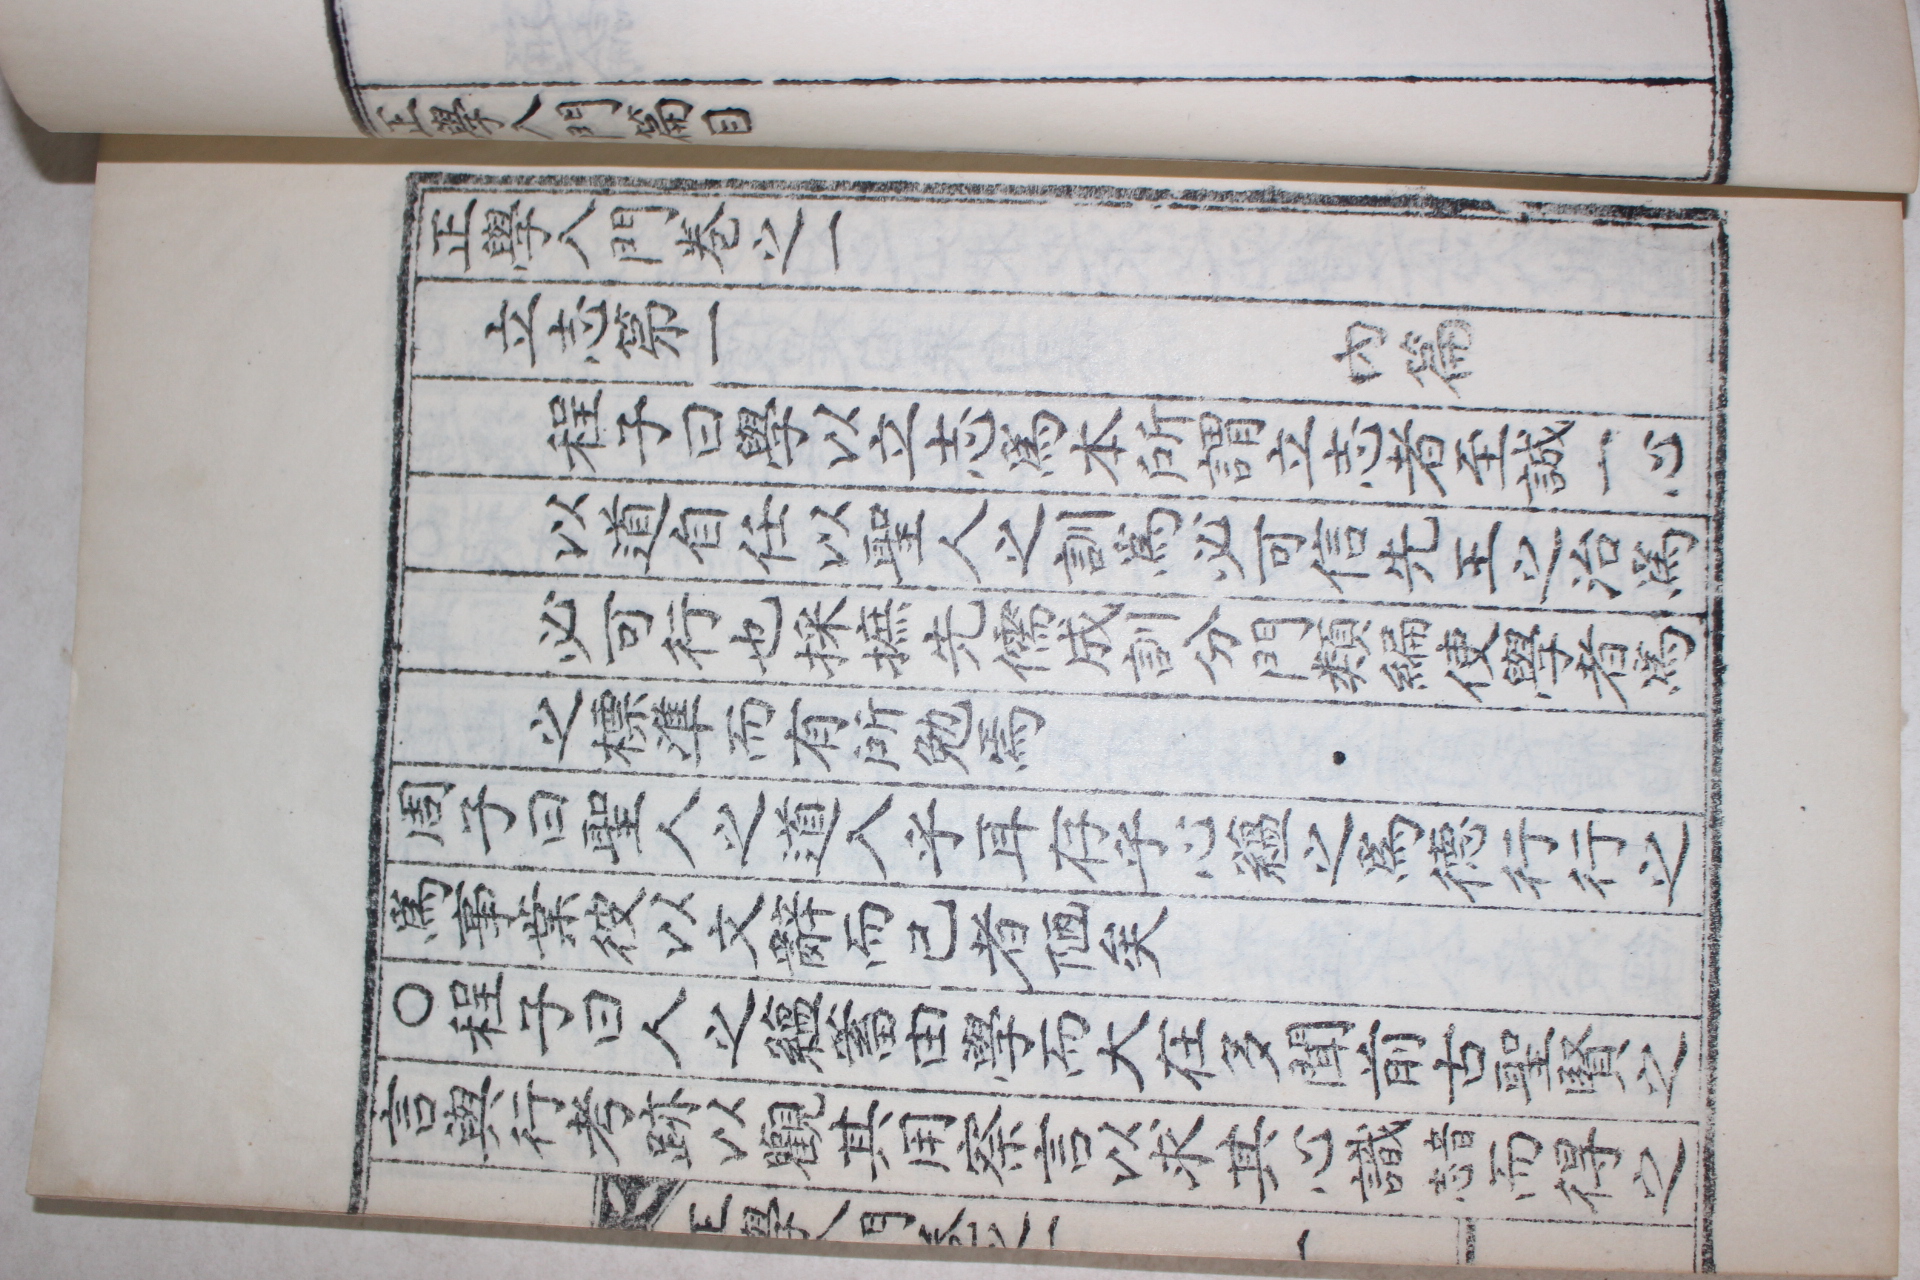 正學入門篇目
正學入門卷之一
立志第一 內篇
程子曰學以立志爲本所謂立志者至誠一心
以道自任以聖人之訓爲必可信先王之治爲
必可行也採摭先儒成訓分門類編使學者爲
之標準而有所勉焉
周子曰聖人之道入乎耳存乎心蘊之爲德行行之
爲事業彼以文辭而已者陋矣
○程子曰人之蘊蓄由學而大在多聞前古聖賢之
言與行考跡以觀其用察言以求其心識音志而得之
正學入門卷之一 一